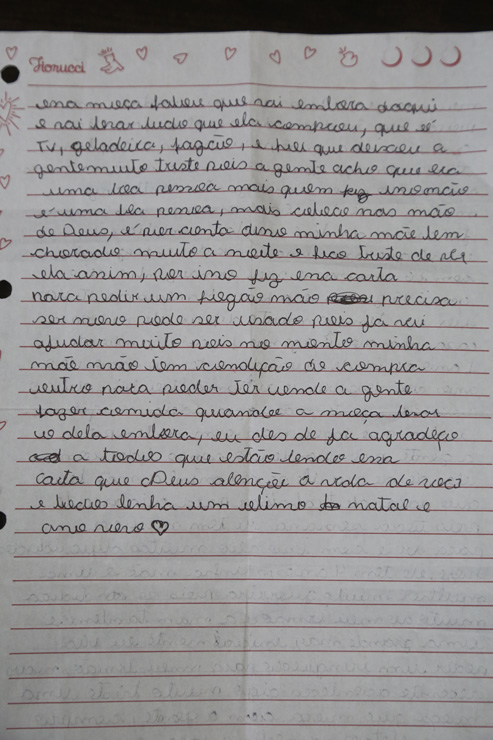 Fiorucci
ena moça falou que vai embora daqui
e vai levar tudo que ela comprou, que é
TV, geladeira, fogão, e frei que deixou a
gente muito triste pois a gente acho que era
uma boa pessoa mais quem faz inoração
é uma boa pessoa, mais coloco nas mão
de Deus, e por conta diso minha mãe tem
chorado muito a noite e fico triste de ver
ela asim, por iso fiz esa carta
para pedir um fogão não precisa
ser novo pode ser usado pois ja vai
ajudar muito pois no momento minha
mãe não tem condição de compra
outro para poder ter onde a gente
fazer comida quando a moça levar
o dela embora, eu des de ja agradeço
a todos que estão lendo essa
carta que Deus abençõe a vida de você
e todos tenha um otimo natal e
ano novo